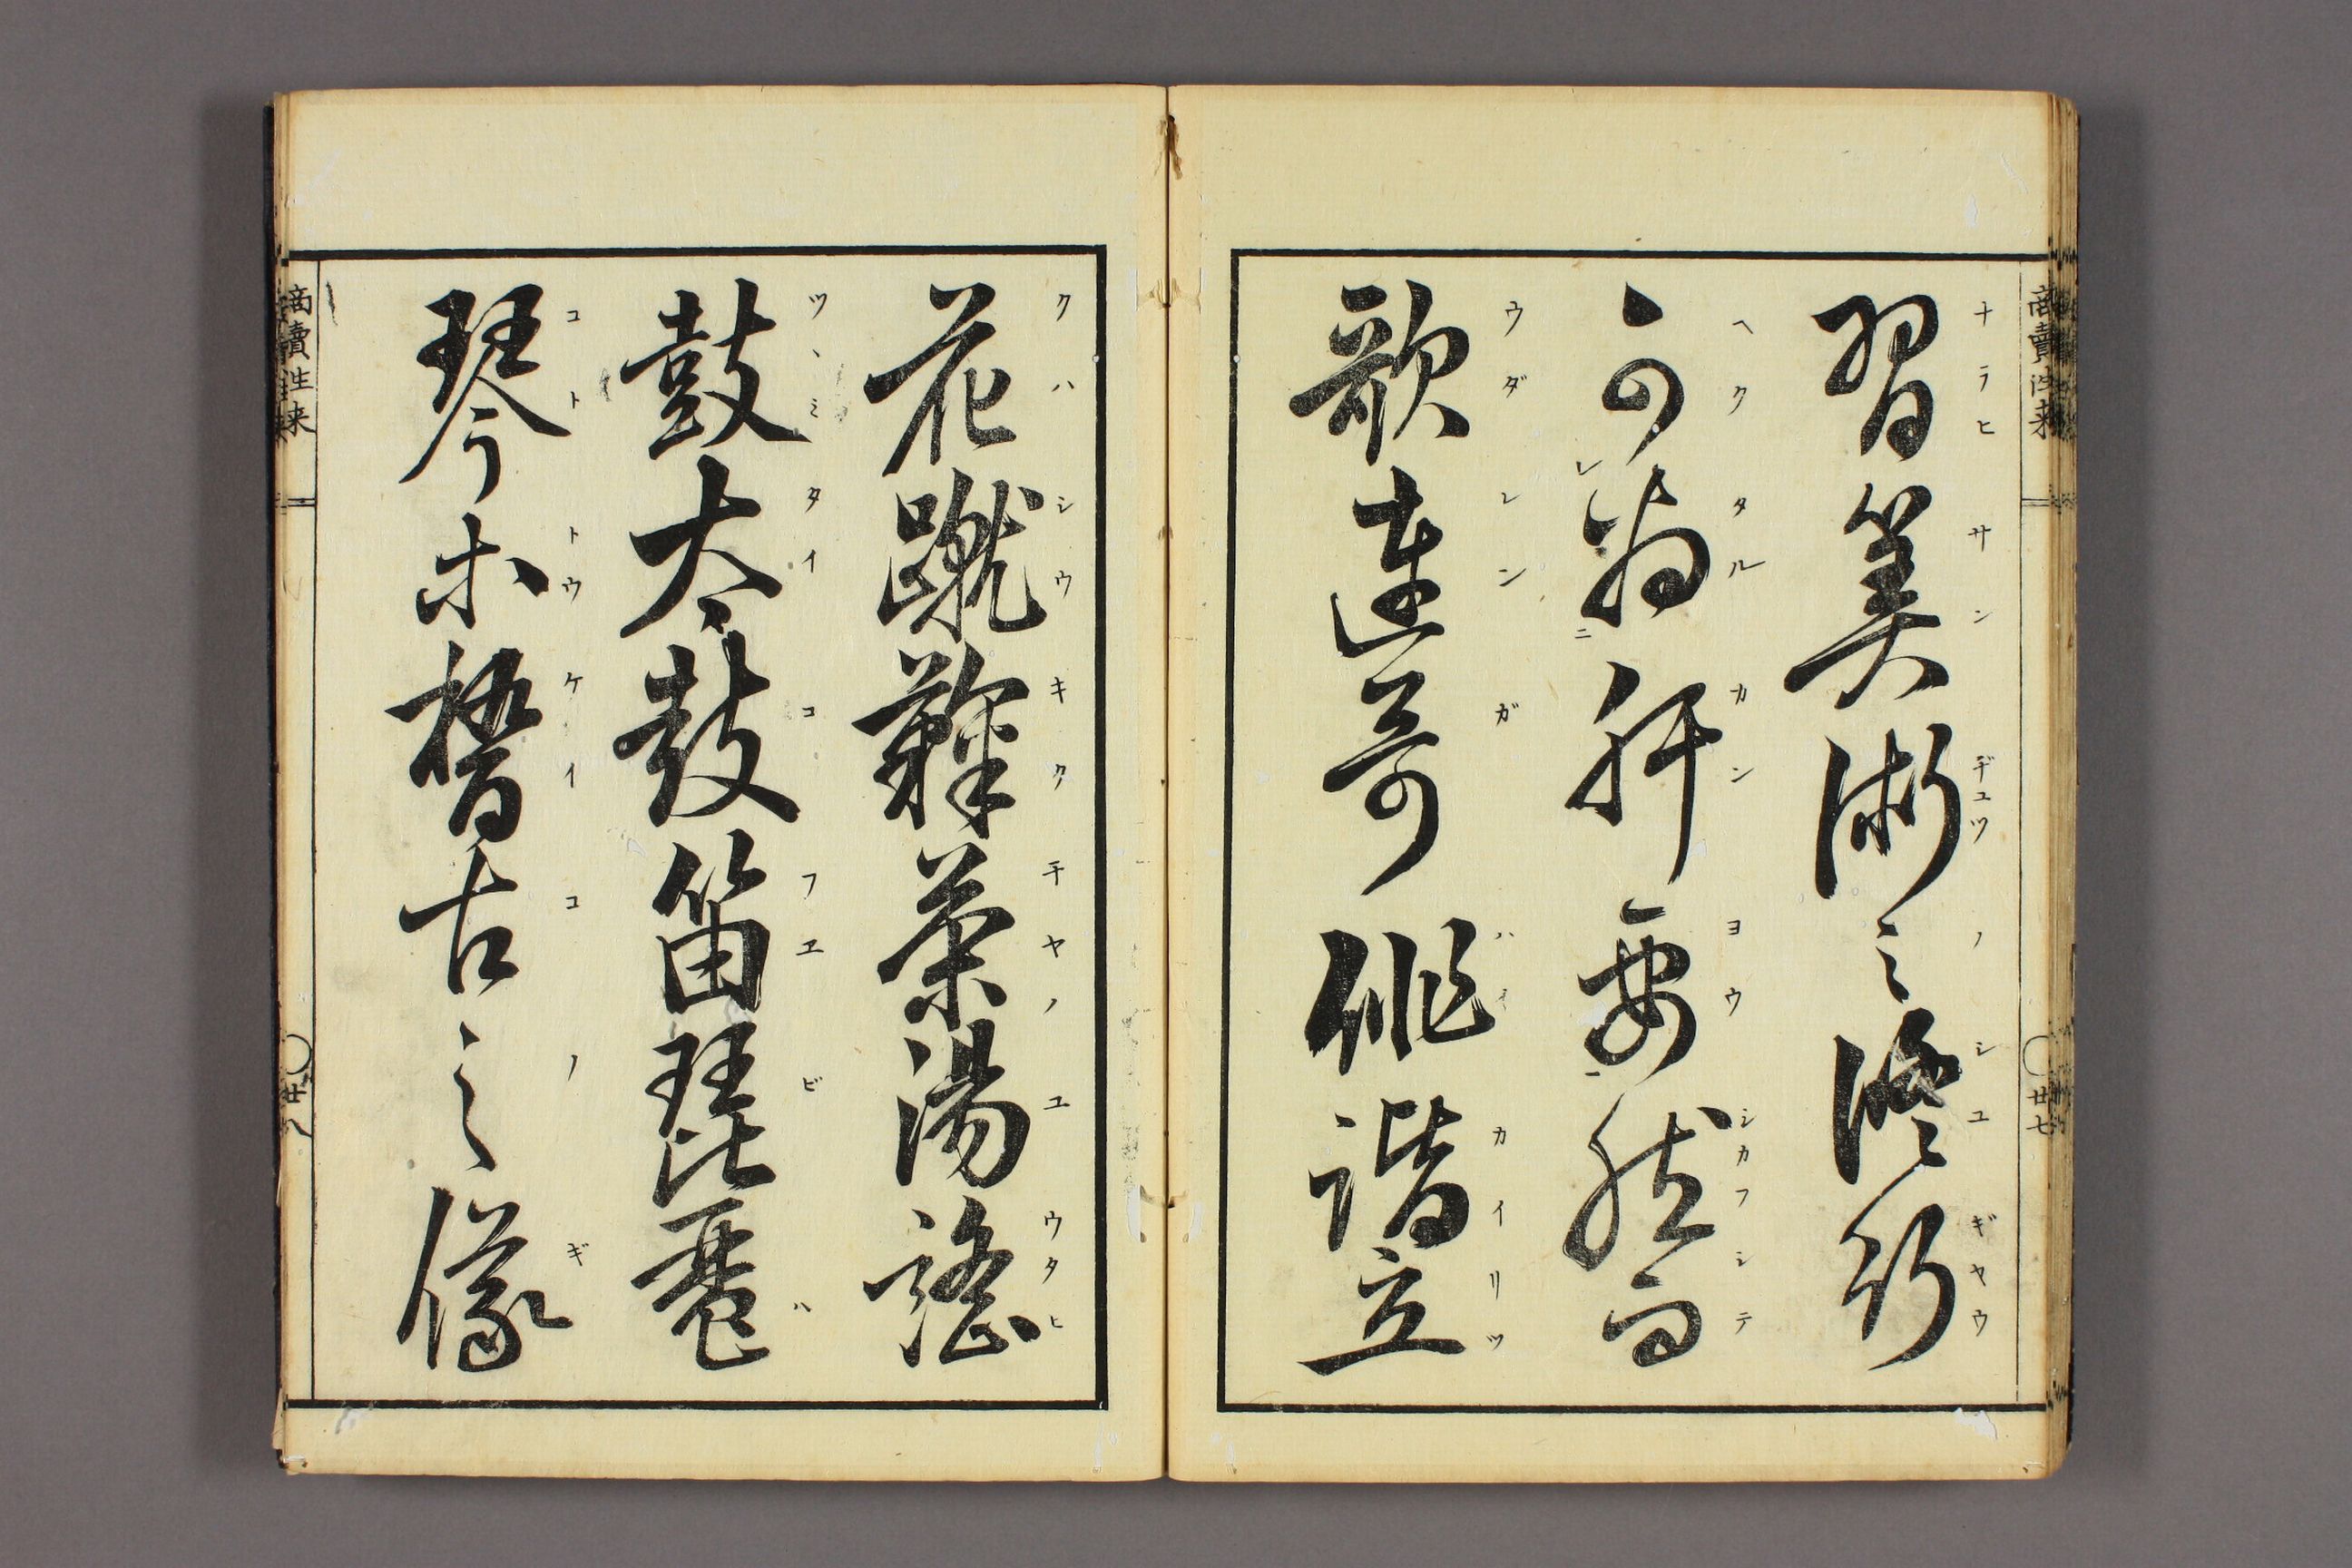 商賣往来
廿七
習算術之修行
ナラヒサンヂュツノシユギヤウ
可為肝要然而
ヘクタルカンヨウシカフシテ
レ ニ
歌連哥俳諧立
ウダレンガハイカイリツ
花蹴鞠茶湯謡
クハシウキクチヤノユウタヒ
鼓太鼓笛琵琶
ツヽミタイコフエビハ
琴等稽古之儀
コトトウケイコノギ
商賣往来
廿八